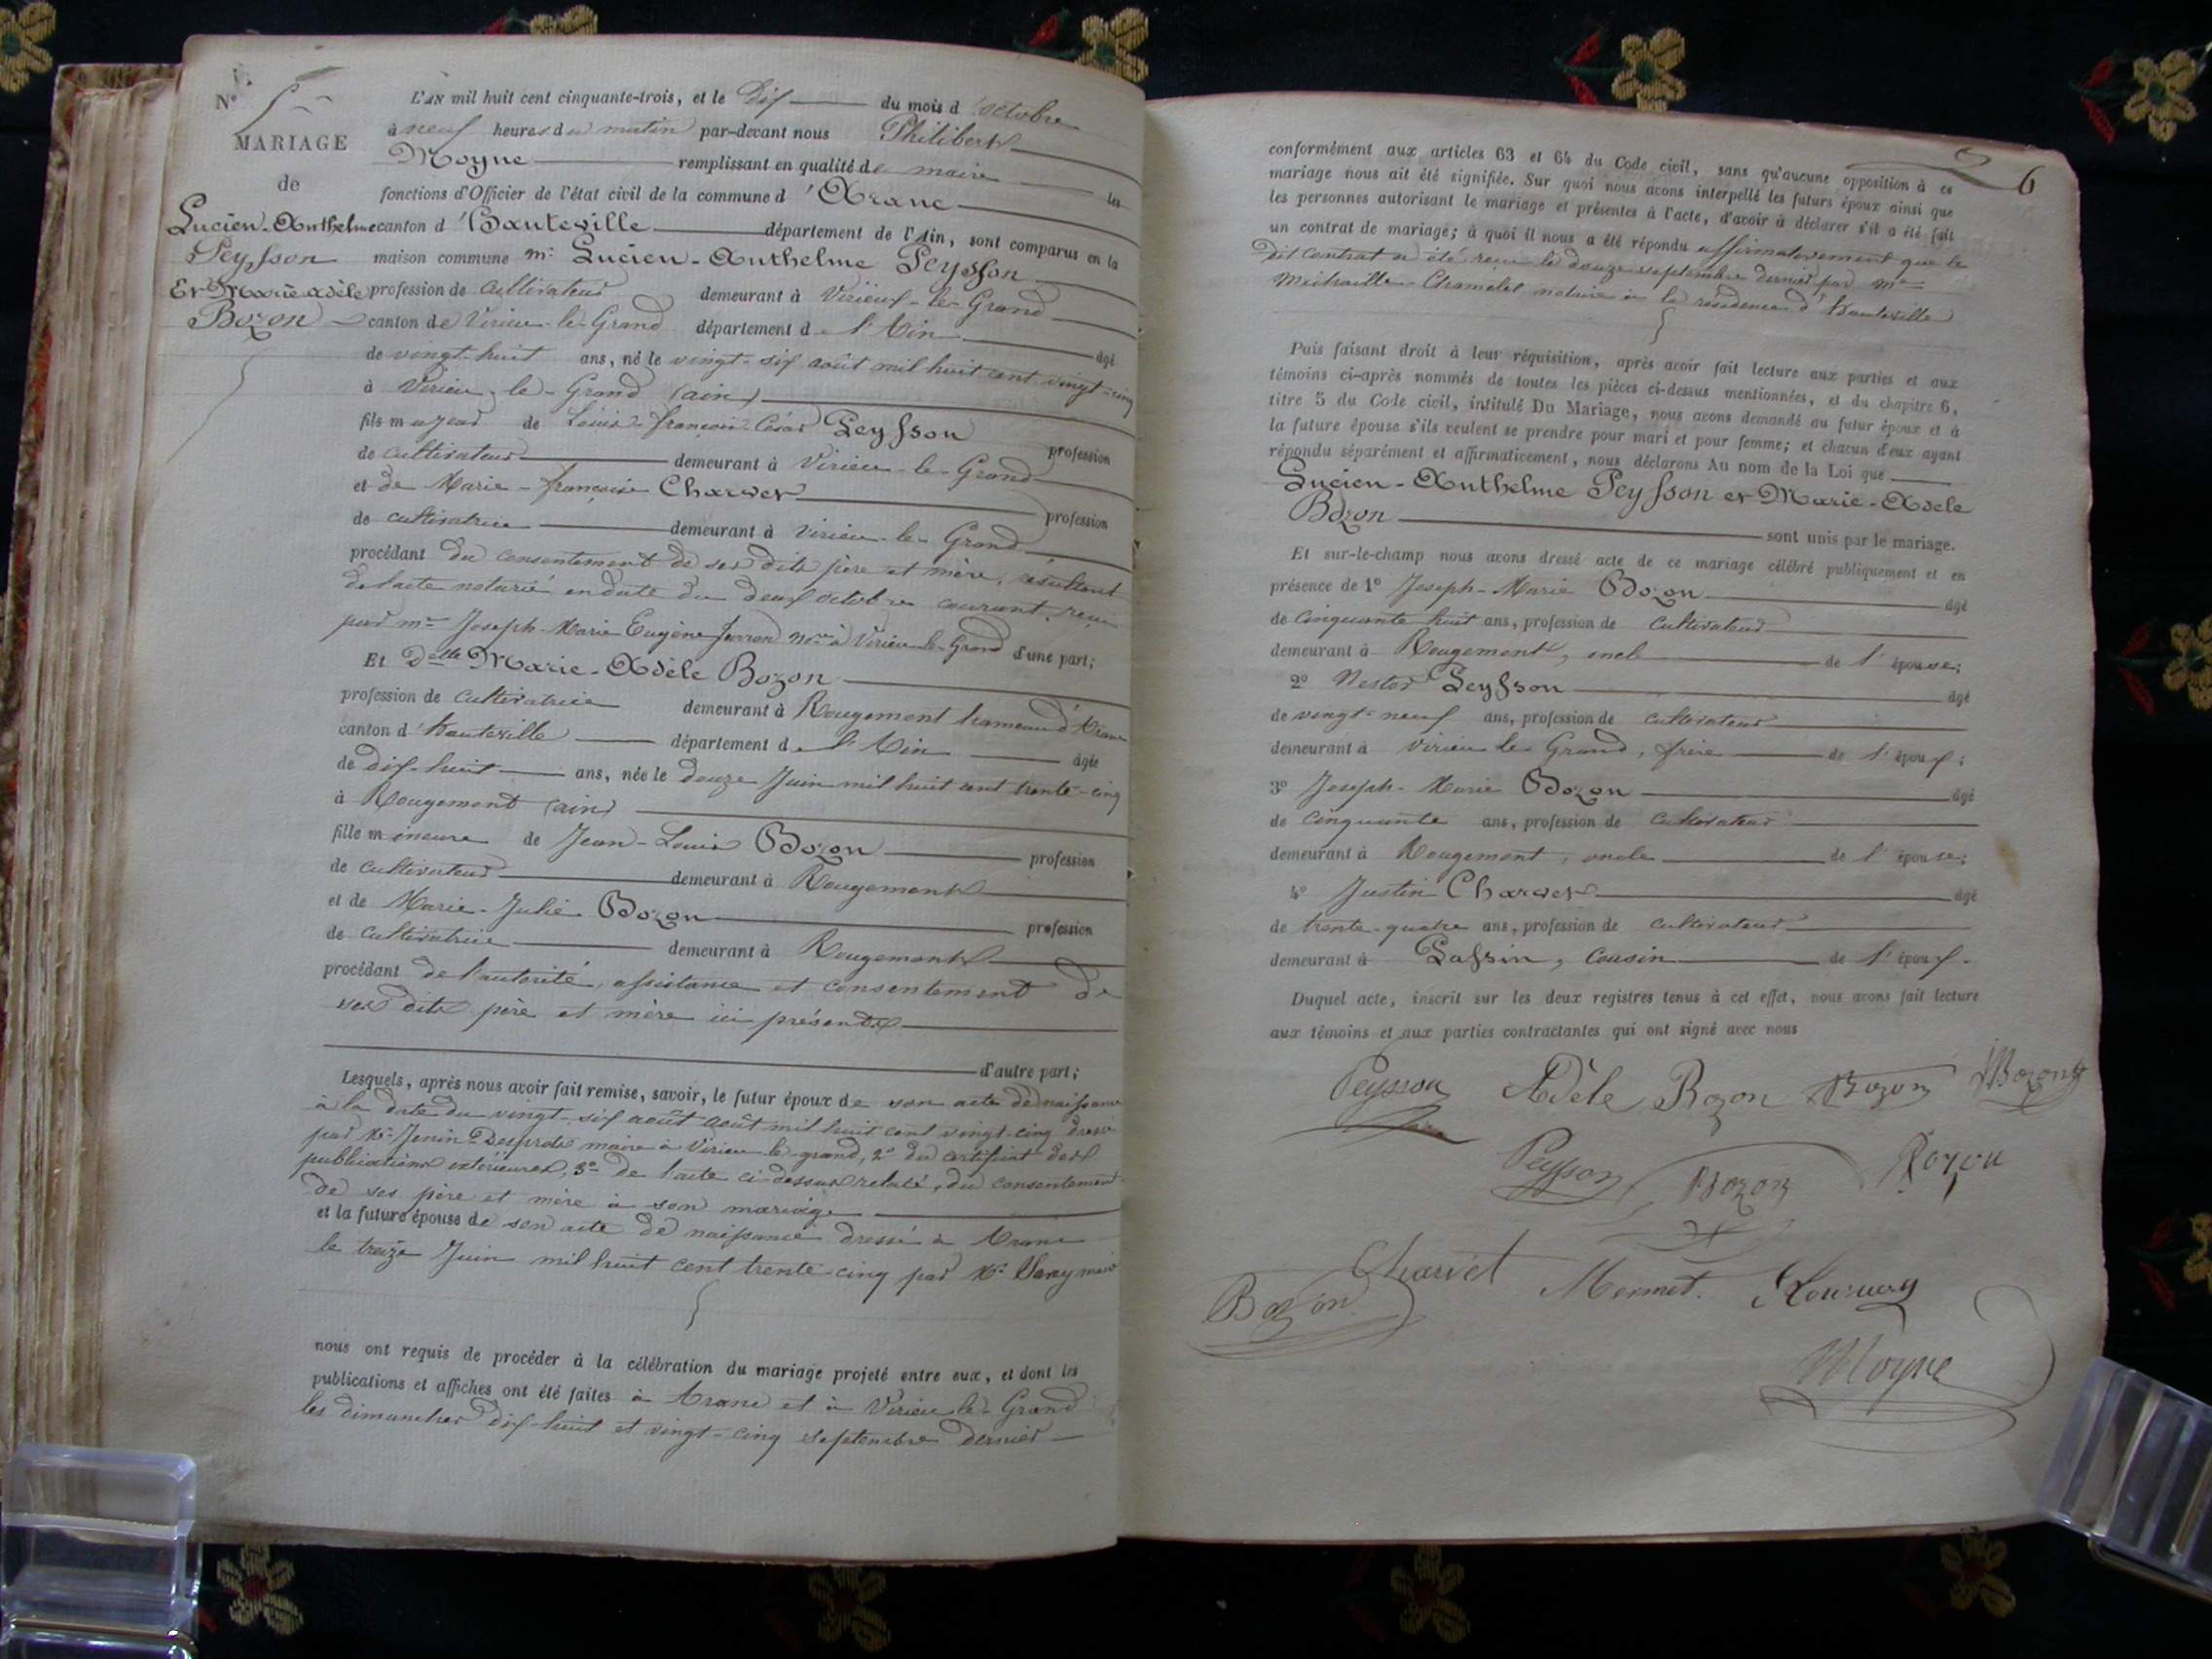 N° 5
MARIAGE
de
Lucien-Anthelme
Peysson
Et Marie Adèle
Bozon
L'AN mil huit cent cinquante-trois, et le Dix du mois d'octobre
à neuf heures du matin par-devant nous Philibert
Moyne remplissant en qualité de maire les
fonctions d'Officier de l'état civil de la commune d'Aranc
canton d'Hauteville département de l'Ain, sont comparus en la
maison commune mr Lucien-Anthelme Peysson
profession de cultivateur demeurant à Virieux-le-Grand
canton de Virieu-le-Grand département de l'Ain âgé
de vingt-huit ans, né le vingt-six août mil huit cent vingt-cinq
à Virieu-le-Grand (ain)
fils majeur de Louis-françois César Peysson profession
de cultivateur demeurant à Virieu-le-Grand
et de Marie-françoise Charvet profession
de cultivatrice demeurant à Virieu-le-Grand
procédant du consentement de ses dits père et mère, résultant
de l'acte notarié en date du deux octobre courant, reçu
par me Joseph-Marie Eugène no.re à Virieu-le-Grand d'une part;
Et Delle Marie-Adèle Bozon
profession de cultivatrice demeurant à Rougemont hameau d'Aranc
canton d'hauteville département de l'Ain âgée
de dix-huit ans, née le douze Juin mil huit cent trente-cinq
à Rougemont (ain)
fille mineure de Jean-Louis Bozon profession
de cultivateur demeurant à Rougemont
et de Marie-Julie Bozon profession
de cultivatrice demeurant à Rougemont
procédant de l'autorité, assistance et consentement de
ses dits père et mère ici présents
d'autre part;
Lesquels, après nous avoir fait remise, savoir, le futur époux de son acte de naissance
à la date du vingt-six août août mil huit cent vingt-cinq dressé
par Mr Jenin maire à Virieu le grand, 2° du certificat des
publications extérieures, 3° de l'acte ci-dessus relaté, du consentement
de ses père et mère à son mariage
et la future épouse de son acte de naissance dressé à Aranc
le treize Juin mil huit cent trente cinq par Mr Savey maire
nous ont requis de procéder à la célébration du mariage projeté entre eux, et dont les
publications et affiches ont été faites à Aranc et à Virieu-le-Grand
les dimanches dix-huit et vingt-cinq septembre dernier
6
conformément aux articles 63 et 64 du Code civil, sans qu'aucune opposition à ce
mariage nous ait été signifiée. Sur quoi nous avons interpellé les futurs époux ainsi que
les personnes autorisant le mariage et présentes à l'acte, d'avoir à déclarer s'il a été fait
un contrat de mariage; à quoi il nous a été répondu affirmativement que le
dit contrat a été reçu le douze septembre dernier par me
notaire à la résidence d'hauteville
Puis faisant droit à leur réquisition, après avoir fait lecture aux parties et aux
témoins ci-après nommés de toutes les pièces ci-dessus mentionnées, et du chapitre 6,
titre 5 du Code civil, intitulé Du Mariage, nous avons demandé au futur époux et à
la future épouse s'ils veulent se prendre pour mari et pour femme; et chacun d'eux ayant
répondu séparément et affirmativement, nous déclarons Au nom de la Loi que
Lucien-Anthelme Peysson et Marie-Adèle
Bozon sont unis par le mariage.
Et sur-le-champ nous avons dressé acte de ce mariage célébré publiquement et en
présence de 1° Joseph-Marie Bozon âgé
de cinquante huit ans, profession de cultivateur
demeurant à Rougemont, oncle de l'épouse;
2° Nestor Peysson âgé
de vingt-neuf ans, profession de cultivateur
demeurant à Virieu le Grand, frère de l'époux;
3° Joseph-Marie Bozon âgé
de cinquante ans, profession de cultivateur
demeurant à Rougemont, oncle de l'épouse;
4° Justin Charvet âgé
de trente-quatre ans, profession de cultivateur
demeurant à Passin, cousin de l'époux.
Duquel acte, inscrit sur les deux registres tenus à cet effet, nous avons fait lecture
aux témoins et aux parties contractantes qui ont signé avec nous
Peysson Adèle Bozon Bozon Bozon
Peysson Bozon Bozon
Bozon Charvet Mermet
Moyne